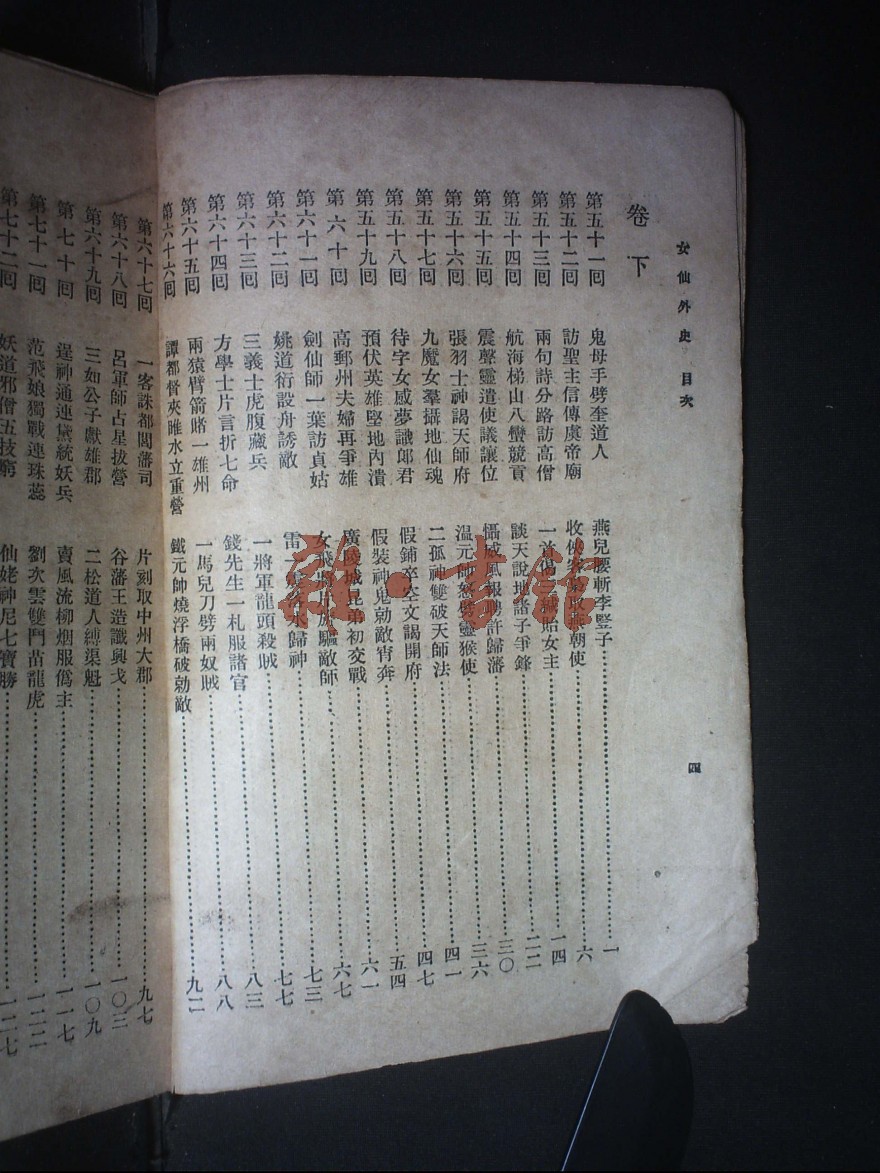 女仙外史 目次
四
卷下
第五十一回 鬼母手劈奎道人 燕兒腰斬李豎子 一
第五十二回 訪聖主信傳虞帝廟 收俠客 朝使 六
第五十三回 兩句詩分路訪高僧 一首 貽女主 一四
第五十四回 航海梯山八蠻競貢 談天說地諸子爭鋒 二二
第五十五回 震聲靈遣使議讓位 懾威風報聘許歸藩 三〇
第五十六回 張羽士神謁天師府 温元帥怒劈靈猴使 三六
第五十七回 九魔女羣攝地仙魂 二孤神雙破天師法 四一
第五十八回 待字女感夢識郎君 假鋪卒空文謁開府 四七
第五十九回 預伏英雄堅地內潰 假裝神鬼勍敵宵奔 五四
第六十回 高郵州夫婦再爭雄 廣陵城兄弟初交戰 六一
第六十一回 劍仙師一葉訪貞姑 女飛將 驅敵師 六七
第六十二回 姚道衍設舟誘敵 雷 水歸神 七三
第六十三回 三義士虎腹藏兵 一將軍龍頭殺賊 七七
第六十四回 方學士片言折七命 錢先生一札服諸官 八三
第六十五回 兩猿臂箭賭一雄州 一馬兒刀劈兩奴賊 八八
第六十六回 譚都督夾睢水立重營 鐵元帥燒浮橋破勍敵 九二
第六十七回 一客誅都閫藩司 片刻取中州大郡 九七
第六十八回 呂軍師占星拔營 谷藩王造讖興戈 一〇三
第六十九回 三如公子獻雄郡 二松道人縛渠魁 一〇九
第七十回 逞神通連黛統妖兵 賣風流柳烟服僞主 一一七
第七十一回 范飛娘獨戰連珠蕊 劉次雲雙鬥苗龍虎 一二二
第七十二回 妖道邪僧五技窮 仙姥神尼七寶勝 一二七